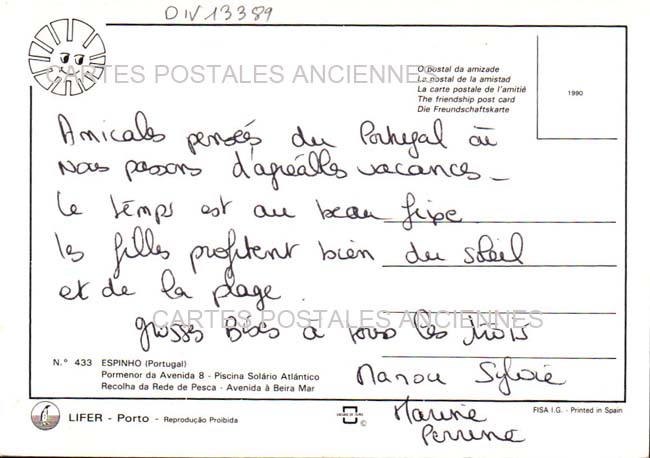 DIV13389
CARTES POSTALES ANCIENNES
O postal da amizade
La postal de la amistad
La carte postale de l'amitié
The friendship post card
Die Freundschaftskarte
1990
Amicales pensés du Portugal où
nous passons d'agréables vacances_
Le temps est au beau fixe
les filles profitent bien du soleil
et de la plage.
grosses Bises à tous les trois
CARTES POSTALES ANCIENNES
Manou Sylvie
Marine
Perrine
N.º 433 ESPINHO (Portugal)
Pormenor da Avenida 8 - Piscina Solário Atlántico
Recolha da Rede de Pesca - Avenida à Beira Mar
LIFER - Porto - Reprodução Proibida
©
FISA I.G. - Printed in Spain